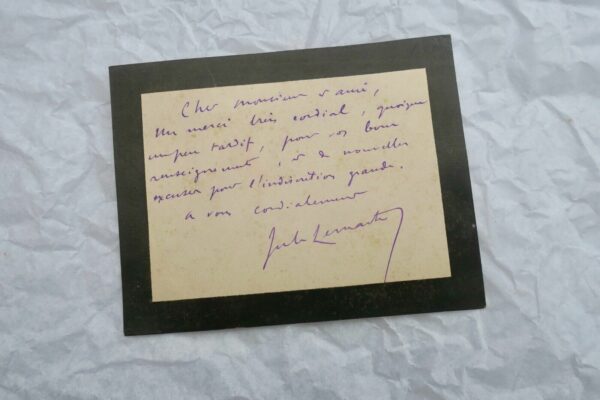 Cher monsieur & ami,
Un merci très cordial, quoique
un peu tardif, pour vos bons
renseignements, & de nouvelles
excuses pour l'indiscrétion grande.
à vous cordialement
Jules Lemaître